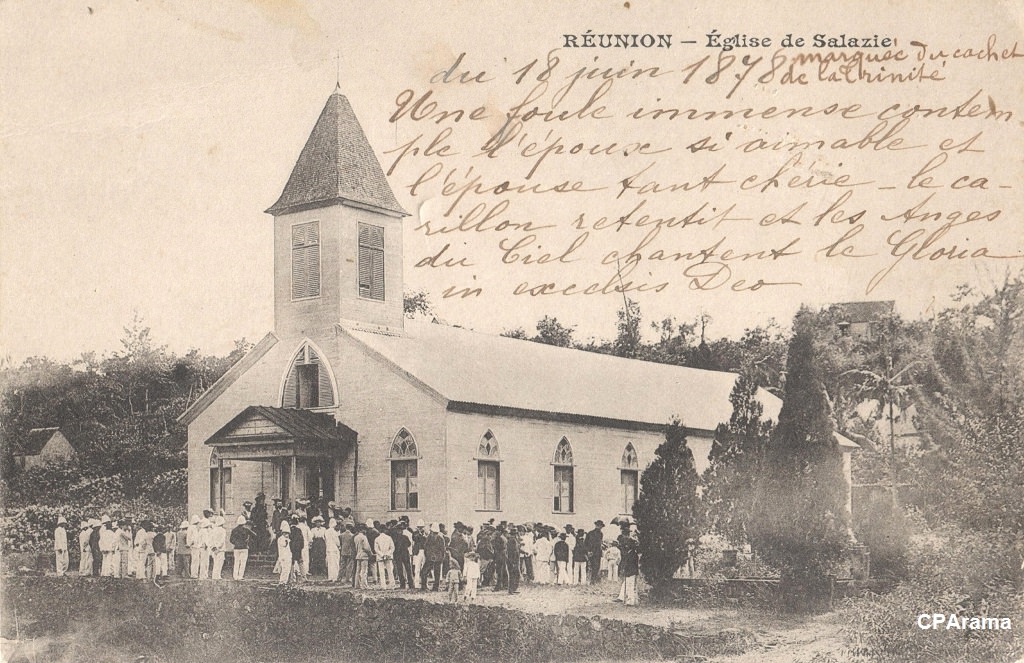 RÉUNION — Église de Salazie
marquée du cachet
du 18 juin 1878 de la trinité
Une foule immense contem-
ple l'époux si aimable et
l'épouse tant chérie - le ca-
rillon retentit et les Anges
du Ciel chantent le Gloria
in excelsis Deo
CPArama